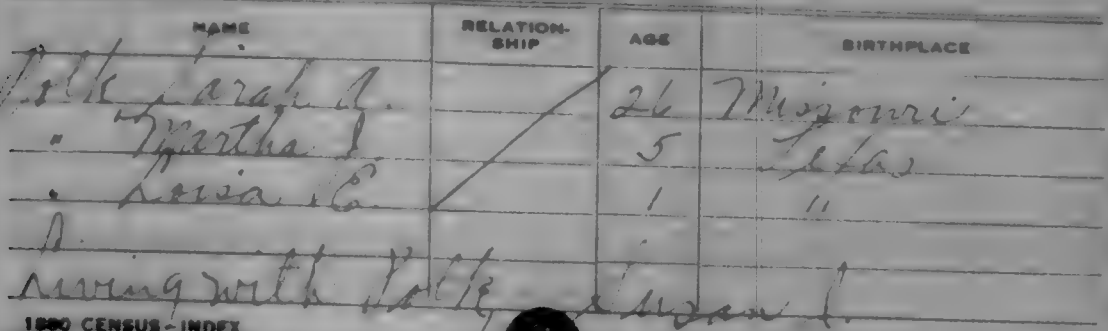 NAME RELATION-SHIP AGE BIRTHPLACE
Polk, Sarah A. 26 Missouri
" Martha I. 5 Texas
" Loisa E. 1 "
Living with Polk, Susan J.
1880 CENSUS-INDEX